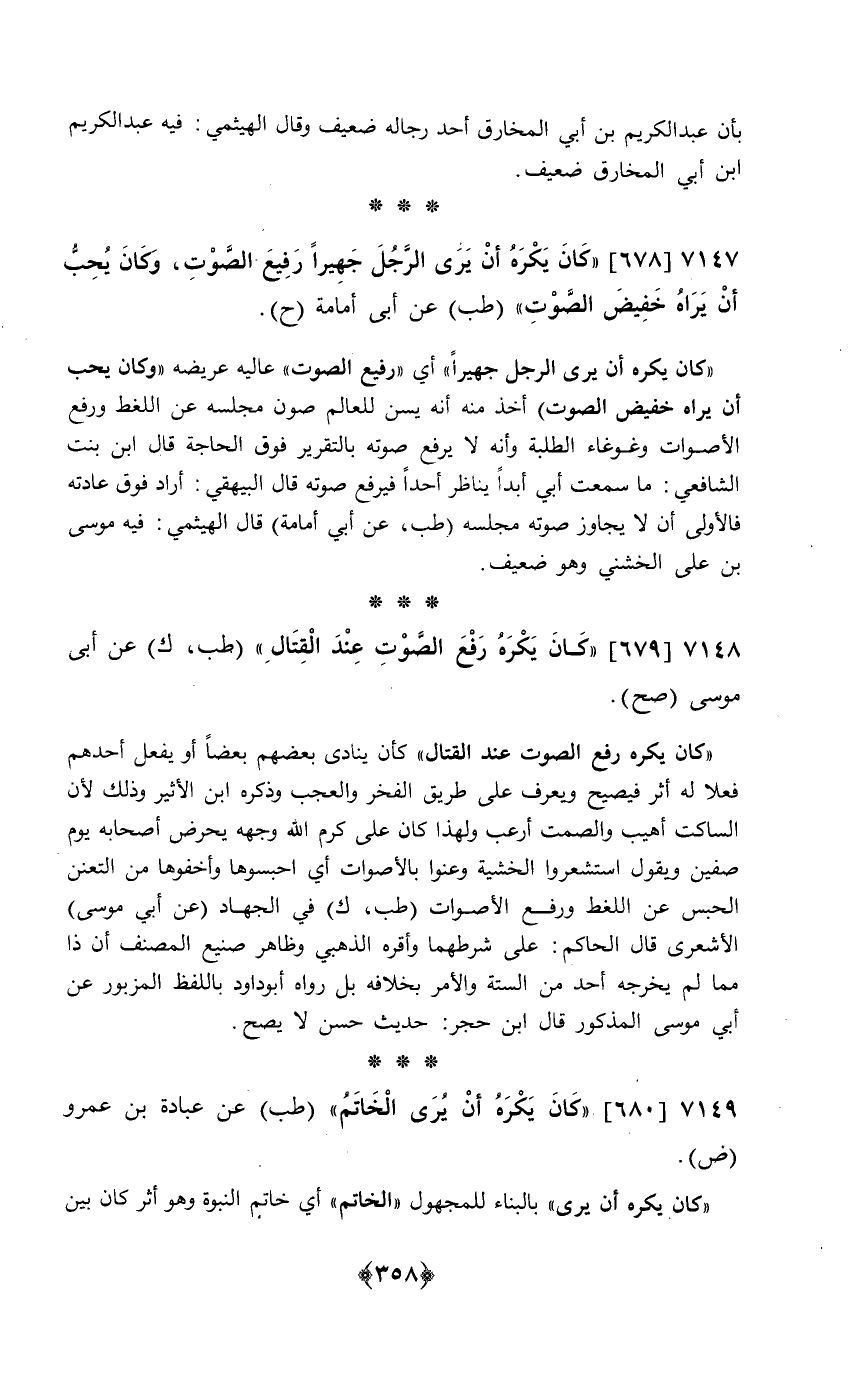 بأن عبدالكريم بن أبي المخارق أحد رجاله ضعيف وقال الهيثمي: فيه عبدالكريم
ابن أبي المخارق ضعيف.
* * *
٧١٤٧ [٦٧٨] «كَانَ يَكْرَهُ أَنْ يَرَى الرَّجُلَ جَهِيراً رَفِيعَ الصَّوْتِ، وَكَانَ يُحِبُّ
أَنْ يَرَاهُ خَفِيضَ الصَّوْتِ» (طب) عن أبى أمامة (ح).
«كان يكره أن يرى الرجل جهيراً» أي «رفيع الصوت» عاليه عريضه «وكان يحب
أن يراه خفيض الصوت) أخذ منه أنه يسن للعالم صون مجلسه عن اللغط ورفع
الأصوات وغوغاء الطلبة وأنه لا يرفع صوته بالتقرير فوق الحاجة قال ابن بنت
الشافعي: ما سمعت أبي أبداً يناظر أحداً فيرفع صوته قال البيهقي: أراد فوق عادته
فالأولى أن لا يجاوز صوته مجلسه (طب، عن أبي أمامة) قال الهيثمي: فيه موسى
بن على الخشني وهو ضعيف.
* * *
٧١٤٨ [٦٧٩] «كَانَ يَكْرَهُ رَفْعَ الصَّوْتِ عِنْدَ الْقِتَالِ» (طب، ك) عن أبى
موسى (صح).
«كان يكره رفع الصوت عند القتال» كأن ينادى بعضهم بعضاً أو يفعل أحدهم
فعلا له أثر فيصيح ويعرف على طريق الفخر والعجب وذكره ابن الأثير وذلك لأن
الساكت أهيب والصمت أرعب ولهذا كان على كرم الله وجهه يحرض أصحابه يوم
صفين ويقول استشعروا الخشية وعنوا بالأصوات أي احبسوها وأخفوها من التعنن
الحبس عن اللغط ورفع الأصوات (طب، ك) في الجهاد (عن أبي موسى)
الأشعرى قال الحاكم: على شرطهما وأقره الذهبي وظاهر صنيع المصنف أن ذا
مما لم يخرجه أحد من الستة والأمر بخلافه بل رواه أبوداود باللفظ المزبور عن
أبي موسى المذكور قال ابن حجر: حديث حسن لا يصح.
* * *
٧١٤٩ [٦٨٠] «كَانَ يَكْرَهُ أَنْ يُرَى الْخَاتَمُ» (طب) عن عبادة بن عمرو
(ض).
«كان يكره أن يرى» بالبناء للمجهول «الخاتم» أي خاتم النبوة وهو أثر كان بين
﴿٣٥٨﴾